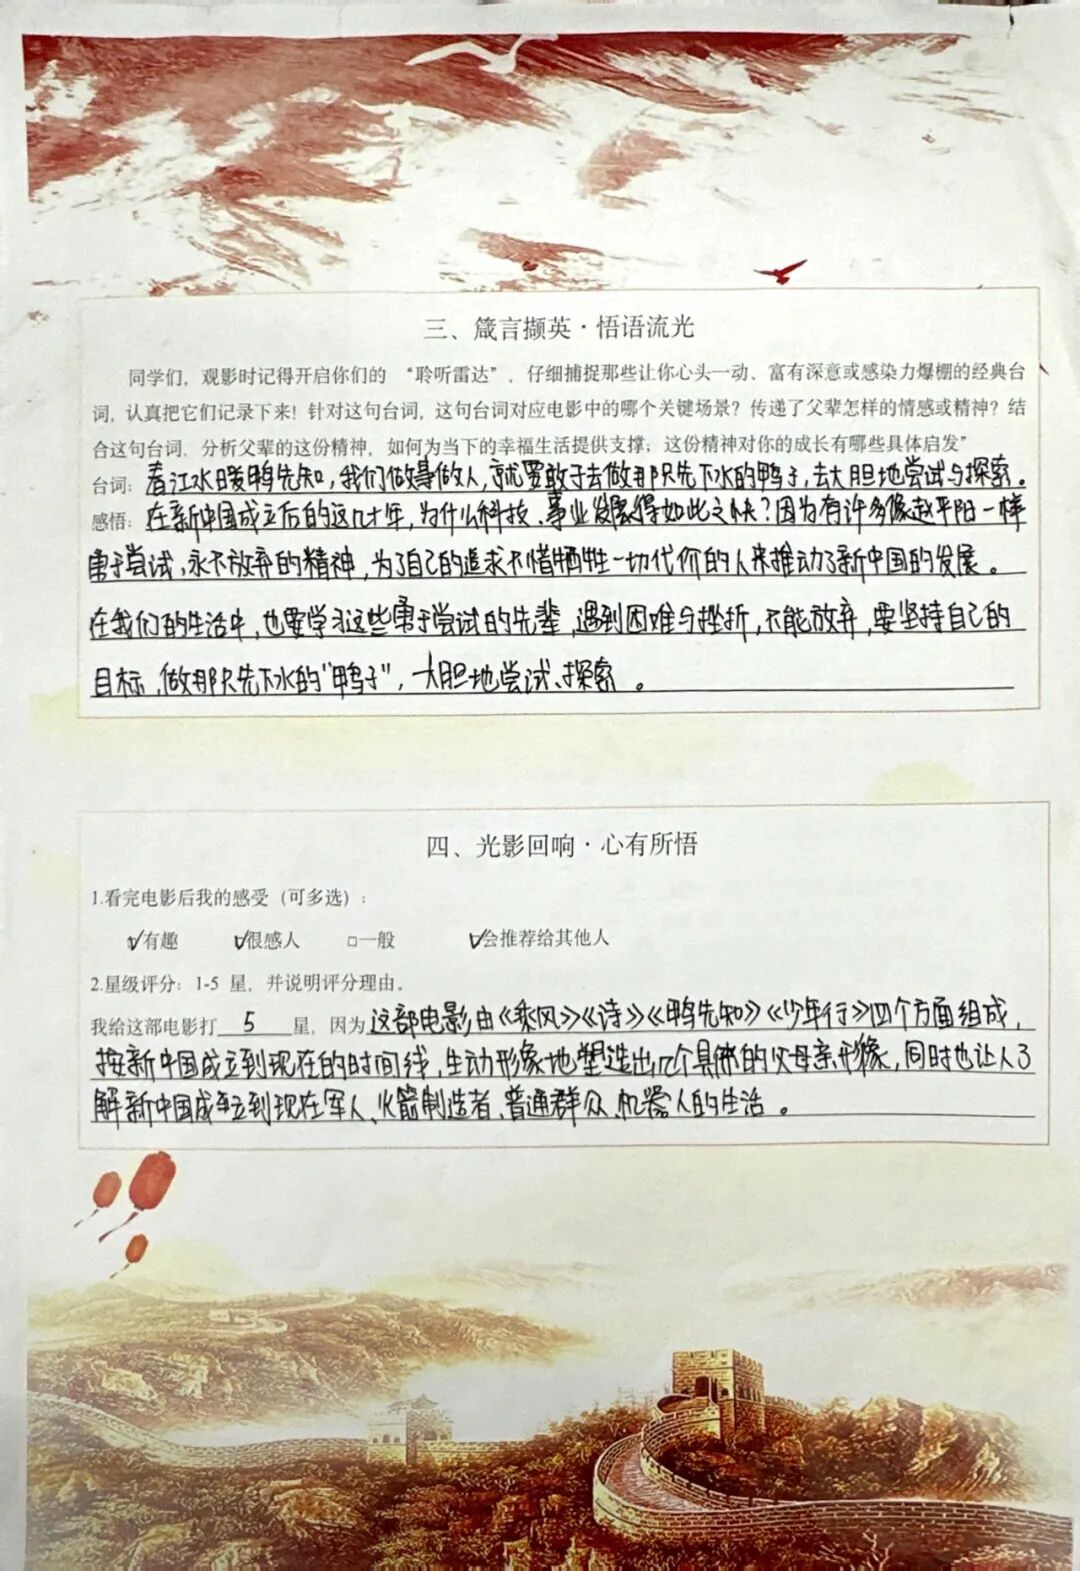 三、箴言撷英·悟语流光
同学们，观影时记得开启你们的 “聆听雷达”，仔细捕捉那些让你心头一动、富有深意或感染力爆棚的经典台
词，认真把它们记录下来！针对这句台词，这句台词对应电影中的哪个关键场景？传递了父辈怎样的情感或精神？结
合这句台词，分析父辈的这份精神，如何为当下的幸福生活提供支撑；这份精神对你的成长有哪些具体启发”
台词：春江水暖鸭先知，我们做事做人，就要敢于去做那只先下水的鸭子，去大胆地尝试与探索。
感悟：在新中国成立后的这几十年，为什么科技、事业发展得如此之快？因为有许多像赵平阳一样
勇于尝试、永不放弃的精神，为了自己的追求不惜牺牲一切代价的人来推动了新中国的发展。
在我们的生活中，也要学习这些勇于尝试的先辈，遇到困难与挫折，不能放弃，要坚持自己的
目标，做那只先下水的“鸭子”，大胆地尝试、探索。
四、光影回响·心有所悟
1.看完电影后我的感受（可多选）：
☑有趣 ☑很感人 □一般 ☑会推荐给其他人
2.星级评分：1-5 星，并说明评分理由。
我给这部电影打 5 星，因为这部电影由《乘风》《诗》《鸭先知》《少年行》四个方面组成，
按新中国成立到现在的时间线，生动形象地塑造出几个具体的父母亲形象，同时也让人了
解新中国成立到现在军人、火箭制造者、普通群众、机器人的生活。